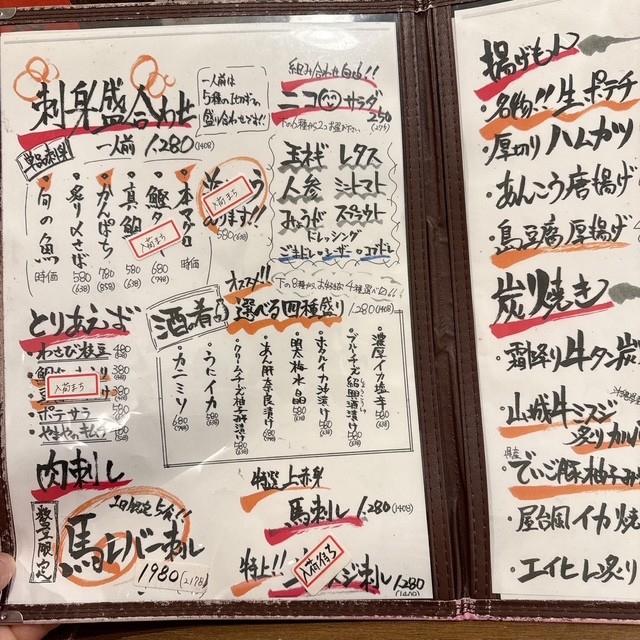 刺身盛合わせ
一人前 1,280(1408)
一人前は
5種の
盛り合わせです!!
単品刺身
本マグロ
鰹タ
680
(748)
真鯛
580
(638)
かんぱち
780
(858)
炙り〆さば
580
(638)
旬の魚
時価
入荷まち
入荷まち
580(638)
組み合わせ自由!!
ニコサラダ
250
(275)
下の6種から2つお選び下さい
玉ネギ レタス
人参 ミニトマト
みょうが スプラウト
ドレッシング
とりあえず
わさび枝豆 480
380
入荷まち
380
ポテサラ 580
やまやのキムチ
オススメ!!
下の8種からお好きな4種選べる!!
酒の肴
選べる四種盛り 1,280(1408)
濃厚イカ塩辛
580
(638)
ブルーチーズ紹興酒漬け
580
(638)
ホタルイカ沖漬け
580
(638)
明太梅水晶
580
(638)
あん肝奈良漬け
680
(748)
クリームチーズ柚子味噌漬け
580
(638)
うにイカ
580
(638)
カニミソ
680
(748)
肉刺し
数量限定
1日限定5食!!
馬レバー刺し
1980(2178)
特選上赤身
馬刺し 1,280(1408)
特上!!
入荷待ち
スジ刺し 1,280
(1408)
揚げもん
・名物!!生ポテチ
・厚切りハムカツ
・あんこう唐揚げ
・島豆腐厚揚げ
炭り焼き
・霜降り牛タン炭
・山城牛ミスジ
炙りカル
県産
・でいご豚柚子み
・屋台風イカ焼
・エイヒレ炙り